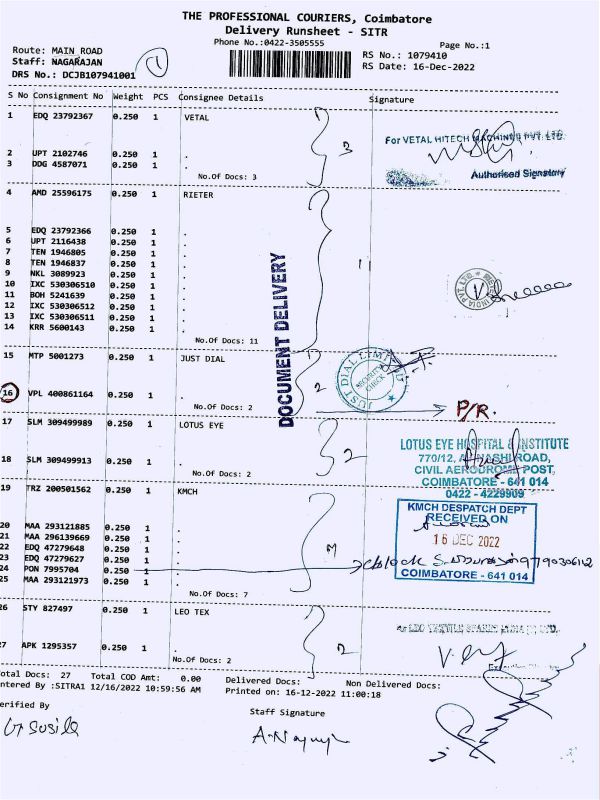 THE PROFESSIONAL COURIERS, Coimbatore
Delivery Runsheet - SITR
Phone No.:0422-3505555
Page No.:1
Route: MAIN_ROAD
Staff: NAGARAJAN
DRS No.: DCJB107941001
1
RS No.: 1079410
RS Date: 16-Dec-2022
S No Consignment No Weight PCS Consignee Details Signature
1 EDQ 23792367 0.250 1 VETAL
2 UPT 2102746 0.250 1 .
3 DDG 4587071 0.250 1 .
No.Of Docs: 3
3
For VETAL HITECH MACHINES PVT. LTD.
Authorised Signatory
4 AMD 25596175 0.250 1 RIETER
5 EDQ 23792366 0.250 1 .
6 UPT 2116438 0.250 1 .
7 TEN 1946805 0.250 1 .
8 TEN 1946837 0.250 1 .
9 NKL 3089923 0.250 1 .
10 IXC 530306510 0.250 1 .
11 BOH 5241639 0.250 1 .
12 IXC 530306512 0.250 1 .
13 IXC 530306511 0.250 1 .
14 KRR 5600143 0.250 1 .
No.Of Docs: 11
11
DOCUMENT DELIVERY
15 MTP 5001273 0.250 1 JUST DIAL
16 VPL 400861164 0.250 1 .
No.Of Docs: 2
2
JUST DIAL LIMITED
SECURITY CHECK
P/R.
17 SLM 309499989 0.250 1 LOTUS EYE
18 SLM 309499913 0.250 1 .
No.Of Docs: 2
2
LOTUS EYE HOSPITAL & INSTITUTE
770/12, AVINASHI ROAD,
CIVIL AERODROME POST,
COIMBATORE - 641 014
0422 - 4229909
19 TRZ 200501562 0.250 1 KMCH
20 MAA 293121885 0.250 1 .
21 MAA 296139669 0.250 1 .
22 EDQ 47279648 0.250 1 .
23 EDQ 47279627 0.250 1 .
24 PON 7995704 0.250 1 .
25 MAA 293121973 0.250 1 .
No.Of Docs: 7
7
KMCH DESPATCH DEPT
RECEIVED ON
16 DEC 2022
COIMBATORE - 641 014
26 STY 827497 0.250 1 LEO TEX
27 APK 1295357 0.250 1 .
No.Of Docs: 2
2
Total Docs: 27 Total COD Amt: 0.00 Delivered Docs: Non Delivered Docs:
Entered By :SITRA1 12/16/2022 10:59:56 AM Printed on: 16-12-2022 11:00:18
Verified By
Staff Signature